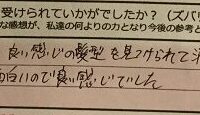 受けられていかがでしたか？（ズバ
な感想が、私達の何よりの力となり今後の参考と
良い感じの髪型を見つけられて
白いので良い感じでした